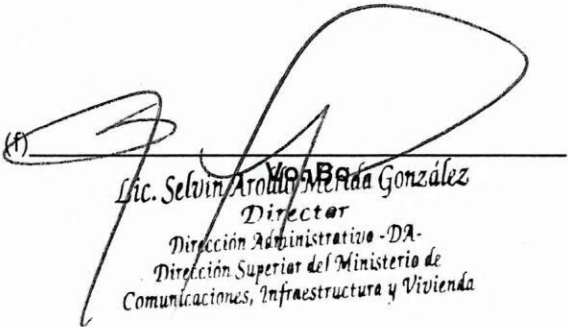 (f)
Vo. Bo.
Lic. Selvin Aroldo Mérida González
Director
Dirección Administrativa -DA-
Dirección Superior del Ministerio de
Comunicaciones, Infraestructura y Vivienda